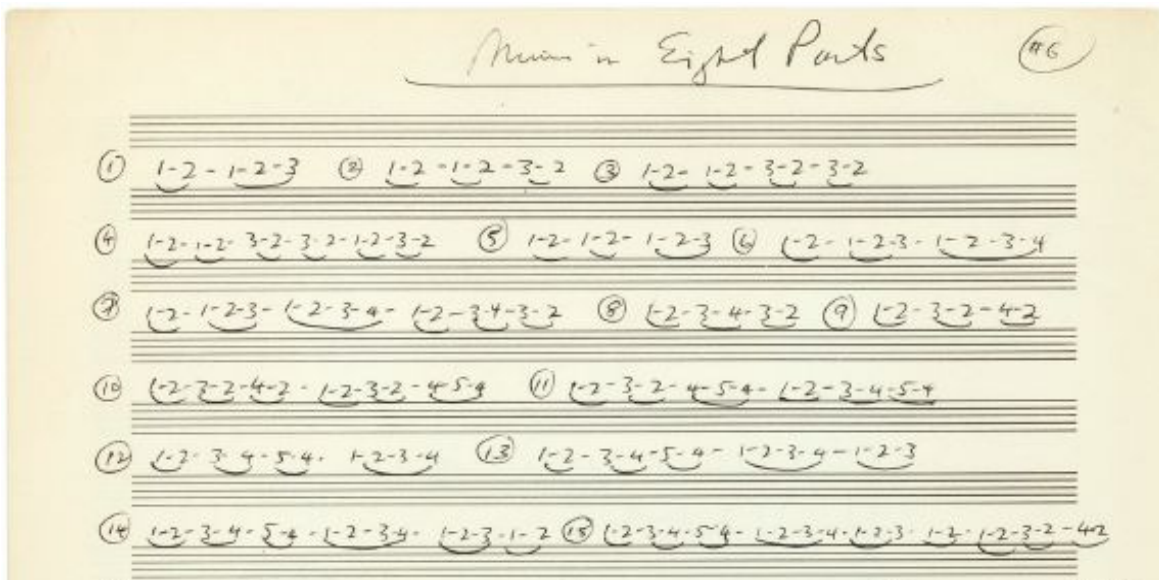 Music in Eight Parts #6
① 1-2-1-2-3 ② 1-2-1-2-3-2 ③ 1-2-1-2-3-2-3-2
④ 1-2-1-2-3-2-3-2-1-2-3-2 ⑤ 1-2-1-2-1-2-3 ⑥ 1-2-1-2-3-1-2-3-4
⑦ 1-2-1-2-3-1-2-3-4-1-2-3-4-3-2 ⑧ 1-2-3-4-3-2 ⑨ 1-2-3-2-4-2
⑩ 1-2-3-2-4-2-1-2-3-2-4-5-4 ⑪ 1-2-3-2-4-5-4-1-2-3-4-5-4
⑫ 1-2-3-4-5-4-1-2-3-4 ⑬ 1-2-3-4-5-4-1-2-3-4-1-2-3
⑭ 1-2-3-4-5-4-1-2-3-4-1-2-3-1-2 ⑮ 1-2-3-4-5-4-1-2-3-4-1-2-3-1-2-1-2-3-2-4-2